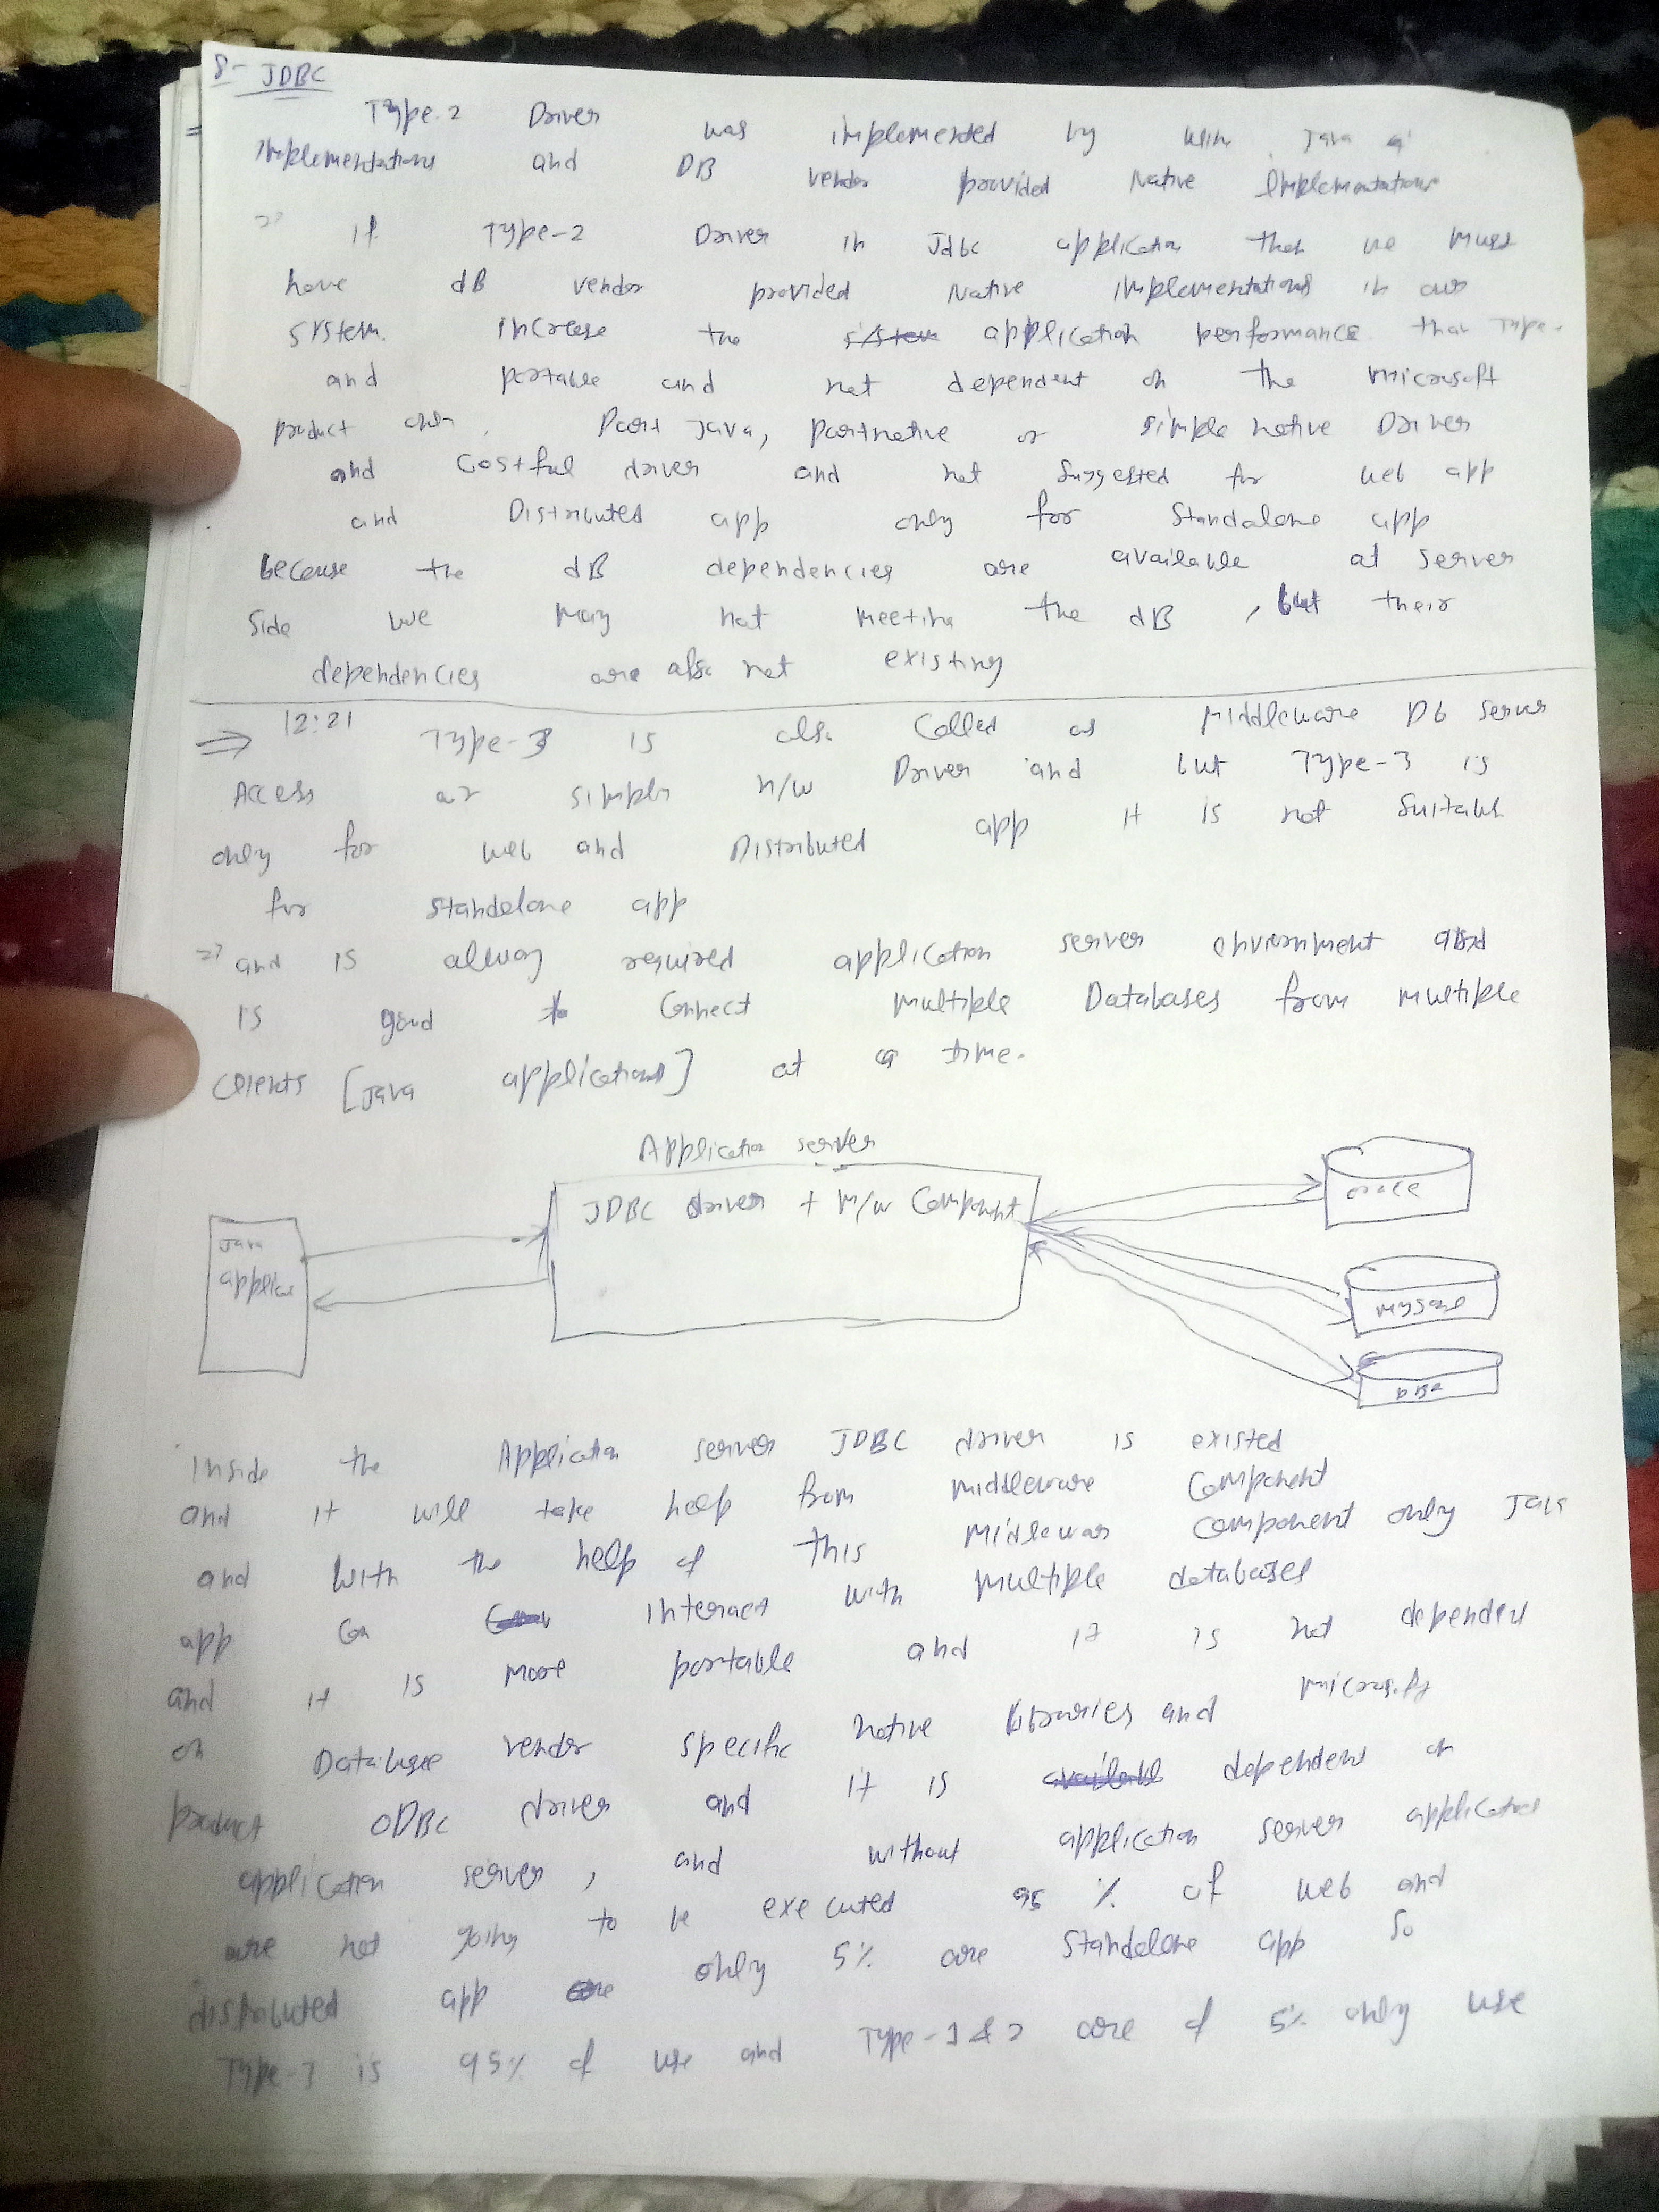 8- JDBC
Type-2 Driver was implemented by using Java
implementations and DB vendor provided Native Implementations
=> If Type-2 Driver in Jdbc application then we must
have dB vendor provided Native implementations in our
system. increase the application performance than Type-
and portable and not dependent on the microsoft
product Part Java, partnative or simple native Driver
and Costful driver and not suggested for web app
and Distributed app only for Standalone app
because the dB dependencies are available at server
side we may not meeting the dB , but their
dependencies are also not existing
=> 12:21 Type-3 is also Called as Middleware Db server
Access or simply n/w Driver and but Type-3 is
only for web and Distributed app it is not suitable
for standalone app
=> and is alway required application server environment and
is good to Connect multiple Databases from multiple
Clients [Java applications] at a time.
Application server
JDBC driver + m/w Component
Java
applica
oracle
mysql
Inside the Application server JDBC driver is existed
and it will take help from middleware Component
and with the help of this Middlewar component only Java
app Can interact with multiple databases
and it is more portable and it is not dependent
on Database vendor specific native libraries and microsoft
product ODBC driver and it is dependent on
application server , and without application server application
are not going to be executed 95 % of web and
distributed app only 5% are standalone app so
Type-3 is 95% of use and Type-1 & 2 are of 5% only use